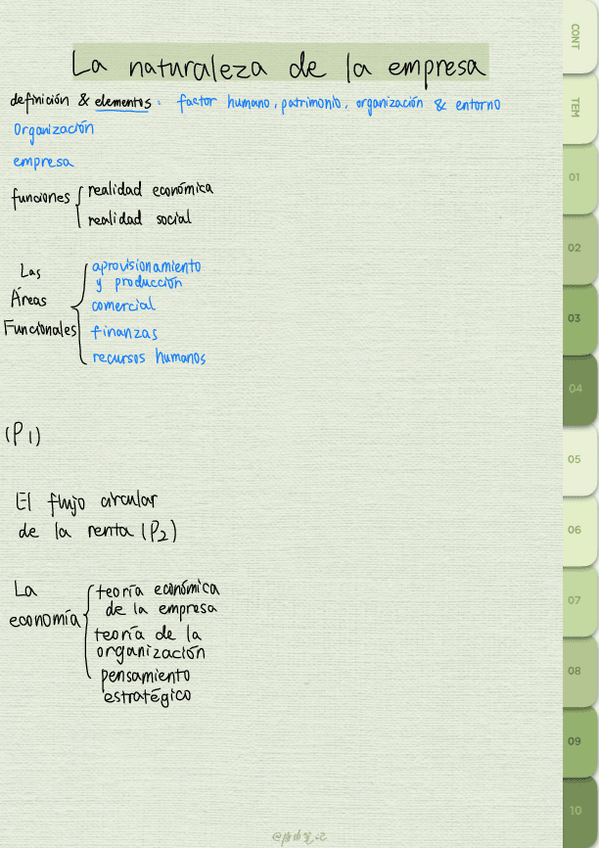 La naturaleza de la empresa
definición & elementos: factor humano, patrimonio, organización & entorno
Organización
empresa
funciones
realidad económica
realidad social
Las
Áreas
Funcionales
aprovisionamiento
y producción
comercial
finanzas
recursos humanos
(P1)
El flujo circular
de la renta (P2)
La
economía
teoría económica
de la empresa
teoría de la
organización
pensamiento
estratégico
CONT
TEM
01
02
03
04
05
06
07
08
09
10